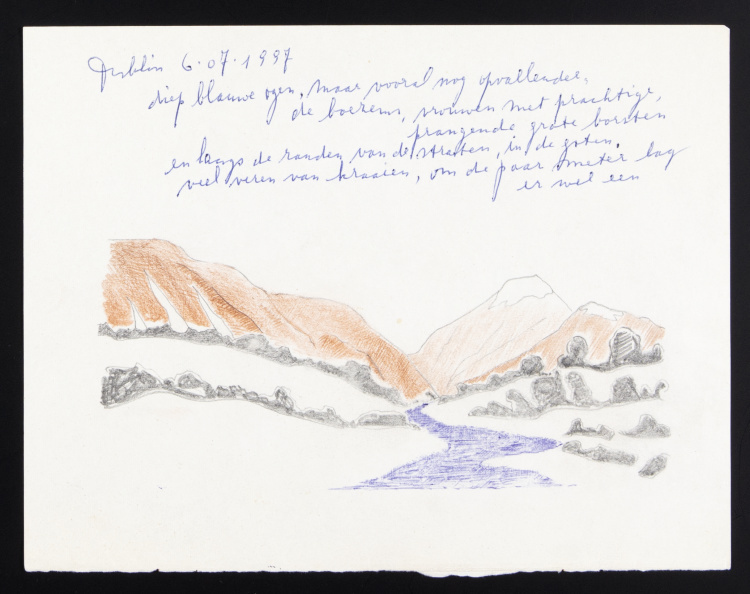 Dublin 6.07.1997
diep blauwe ogen, maar vooral nog opvallender,
de boezems, vrouwen met prachtige,
prangende grote borsten
en langs de randen van de straten, in de goten,
veel veren van kraaien, om de paar meter lag
er wel een